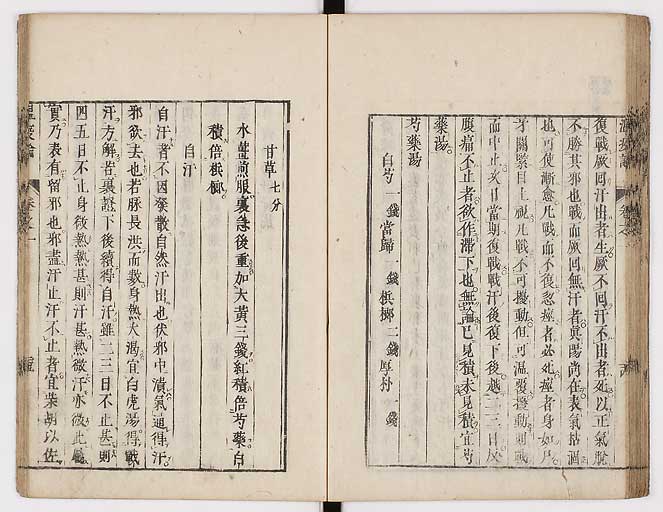 復戰厥回汗出者生厥不回汗不出者死以正氣脫
不勝其邪也戰而厥回無汗者真陽尚在表氣枯涸
也可使漸愈凡戰而不復忽痙者必死痙者身如尸
牙關緊目上視凡戰不可擾動但可溫覆擾動則戰
而中止次日當期復戰戰汗後復下後越二三日反
腹痛不止者欲作滯下也無論已見積未見積宜芍
藥湯
芍藥湯
白芍一錢當歸一錢檳榔二錢厚朴一錢
甘草七分
水薑煎服裏急後重加大黃三錢紅積倍芍藥白
積倍檳榔
自汗
自汗者不因發散自然汗出也伏邪中潰氣通得汗
邪欲去也若脉長洪而數身熱大渴宜白虎湯得戰
汗方解若裏證下後續得自汗雖二三日不止甚則
四五日不止身微熱熱甚則汗甚熱微汗亦微此屬
實乃表有留邪也邪盡汗止汗不止者宜柴胡以佐
溫疫論
卷之一